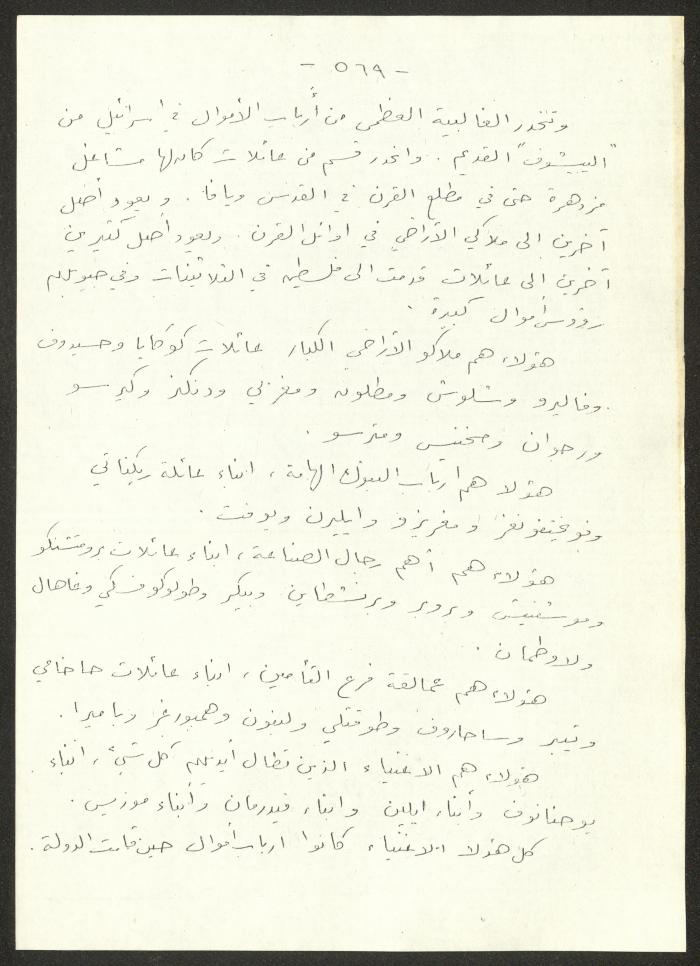 - ٥٦٩ -
وتنحدر الغالبية العظمى من أرباب الأموال في اسرائيل من
"الييشوف" القديم . وانحدر قسم من عائلات كان لها مشاغل
مزدهرة حتى في مطلع القرن في القدس ويافا . ويعود أصل
آخرين الى ملاكي الأراضي في اوائل القرن . ويعود أصل كثيرين
آخرين الى عائلات قدمت الى فلسطين في الثلاثينات وفي جيوبهم
رؤوس أموال كبيرة .
هؤلاء هم ملاكو الأراضي الكبار عائلات كوكايا وحسيدوف
وفاليرو وشلوش ومطلون ومغربي ودنكنز وكيرسو
ورحوان ومترسو .
هؤلا هم أرباب البنوك الهامة ، ابناء عائلة ريكناتي
وفويختفونغر وايليرن ويوفت .
هؤلاء هم أهم رجال الصناعة ، ابناء عائلات
وموشفيتش وبروبر وبرنشطاين وبيكر وطولوكوفسكي وغاهال
ولاوطمان .
هؤلاء هم عمالقة فرع التأمين ، ابناء عائلات حاخامي
وتيبر وساحاروف وطوقتلي ولفون وهمبورغر وباميرا .
هؤلاء هم الاغنياء الذين تطال أيديهم كل شيء ، ابناء
يوحنانوف وأبناء ايلين وابناء فيدرمان وأبناء موزيس .
كل هؤلا الاغنياء كانوا ارباب أموال حين قامت الدولة .